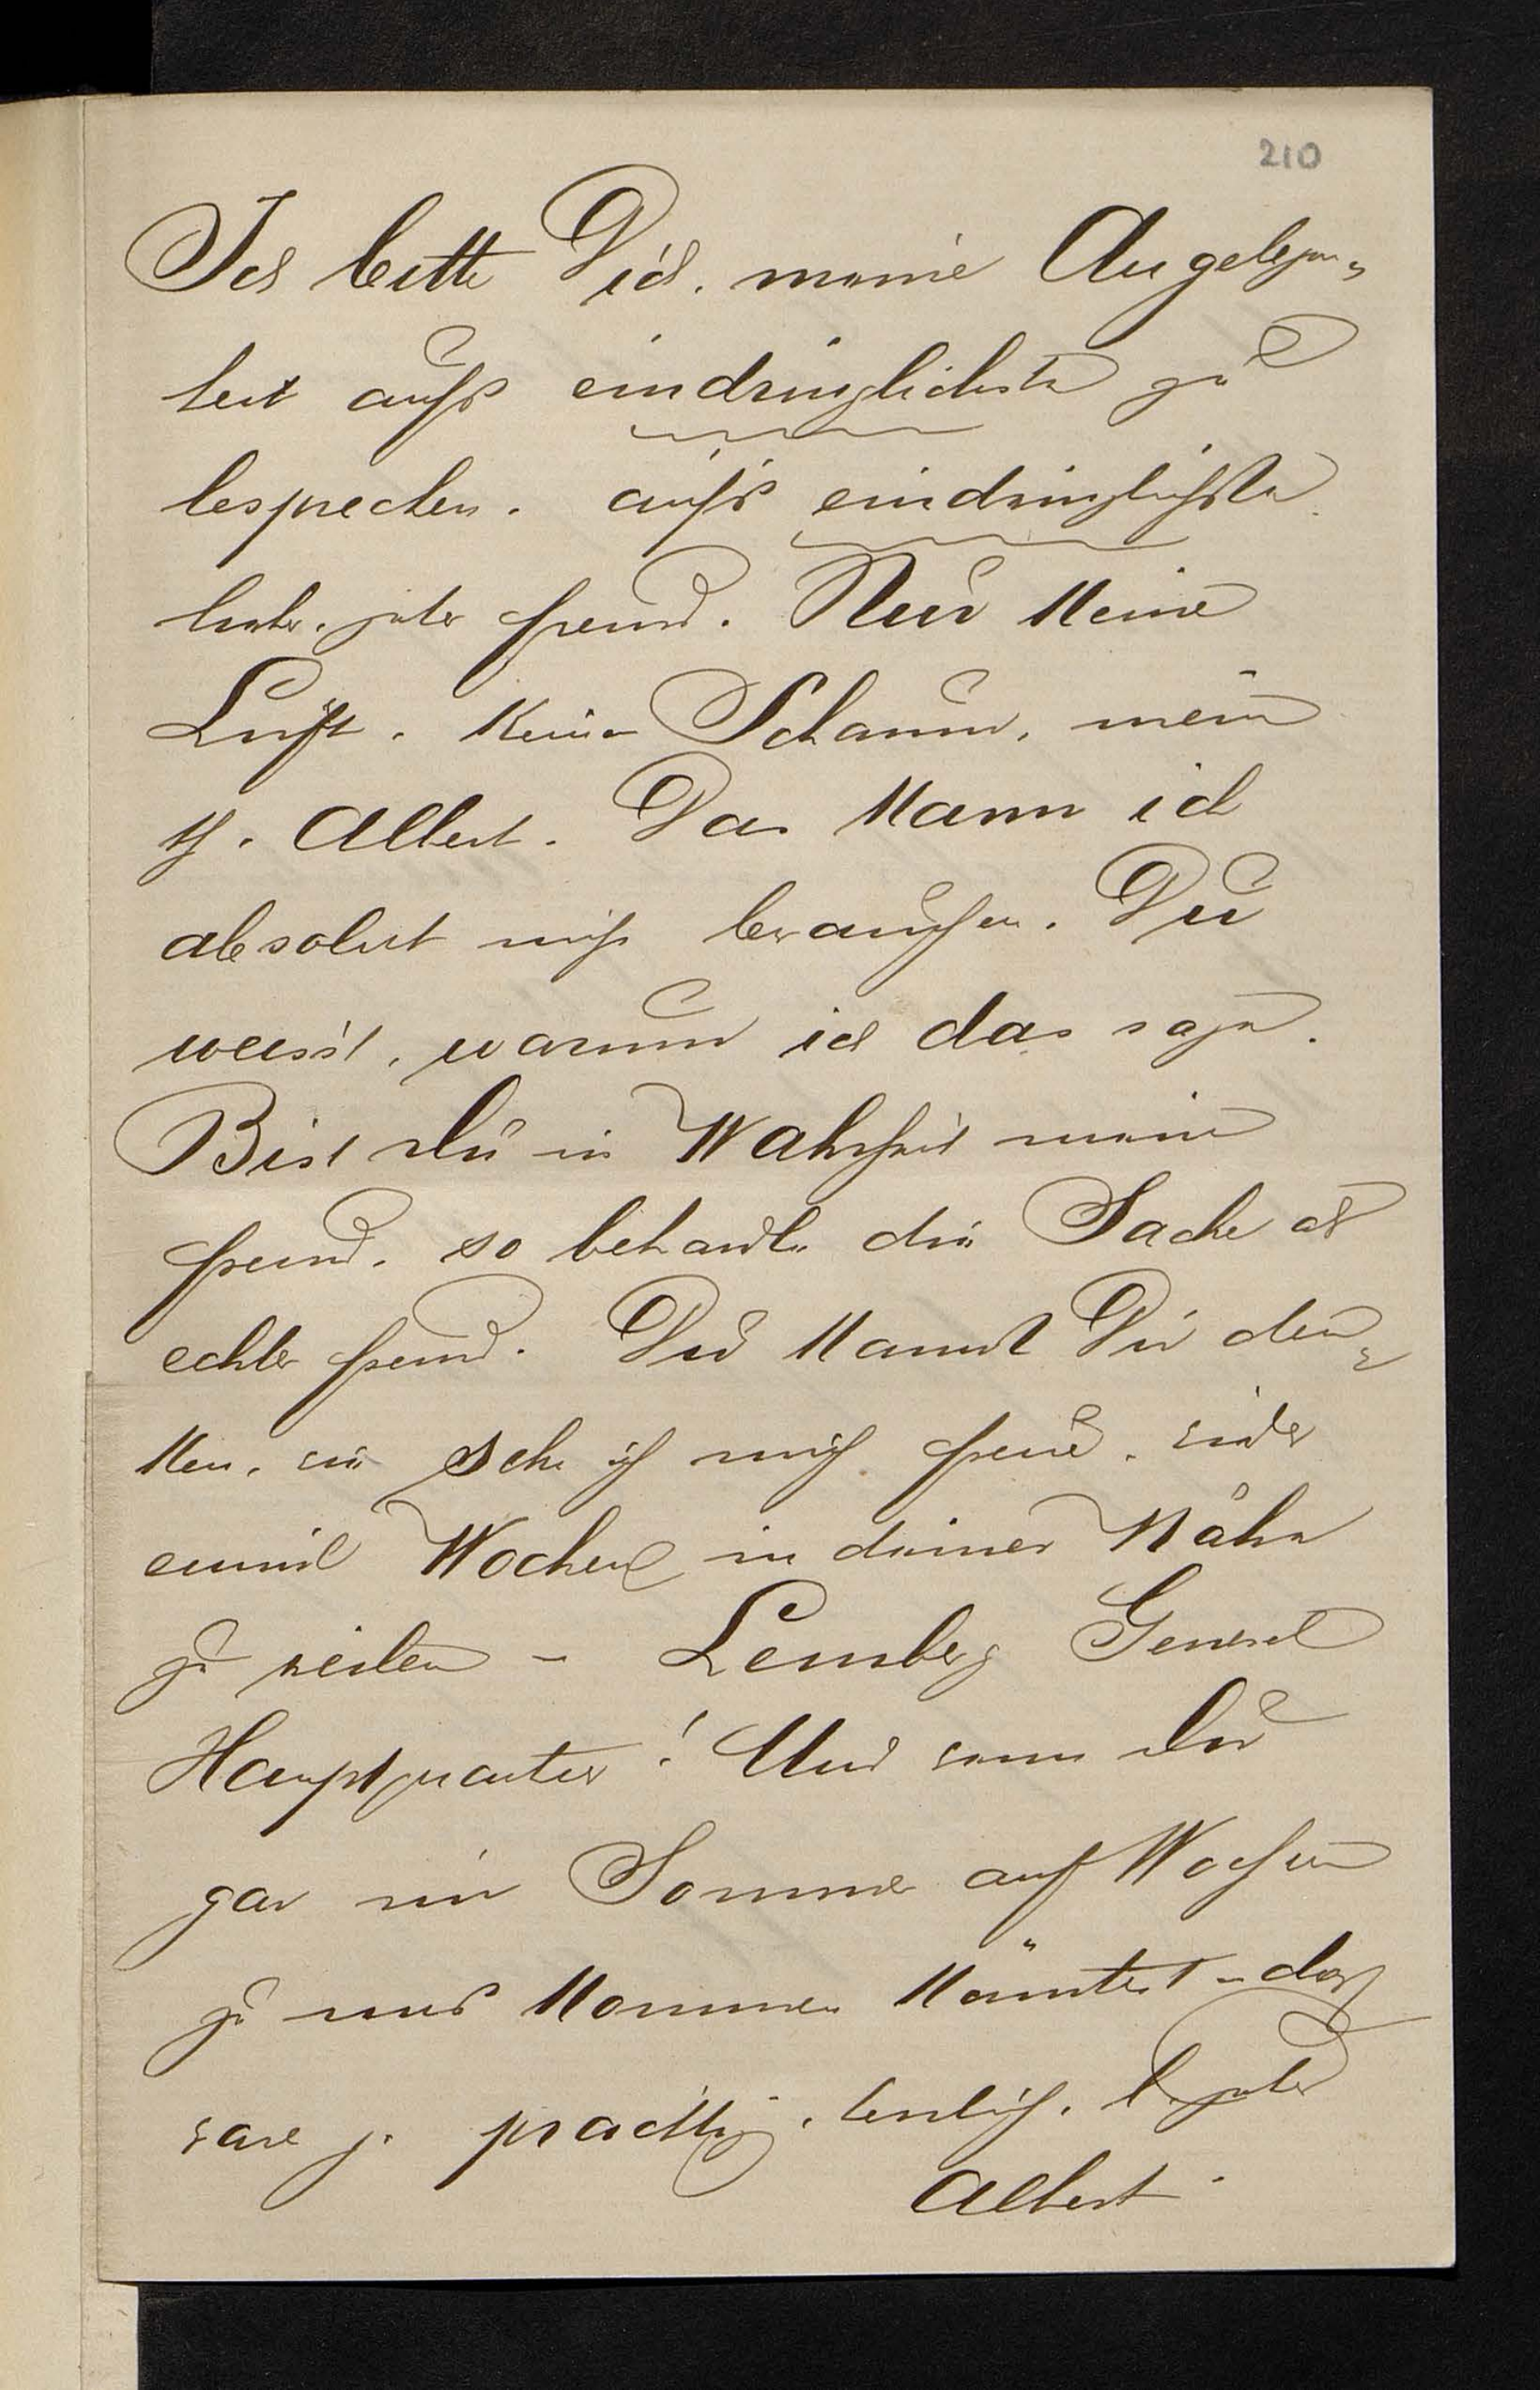 210
Ich bitte Dich, meine Angelegen=
heit aufs eindringlichste zu
besprechen. aufs eindringlichste
lieber, guter Freund. Nur keine
Luft. keinen Schaum, mein
th. Albert. Das kann ich
absolut nicht brauchen. Du
weisst, warum ich das sage.
Bist Du in Wahrheit mein
Freund, so behandle die Sache als
echter Freund. Du kannst Dir den=
ken, wie sehr ich mich freue, wieder
einmal Wochen in deiner Nähe
zu weilen – Lemberg General
Hauptquartier! Und wenn Du
gar im Sommer auf Wochen
zu uns kommen könntest – das
wäre ja prächtig. guter
Albert